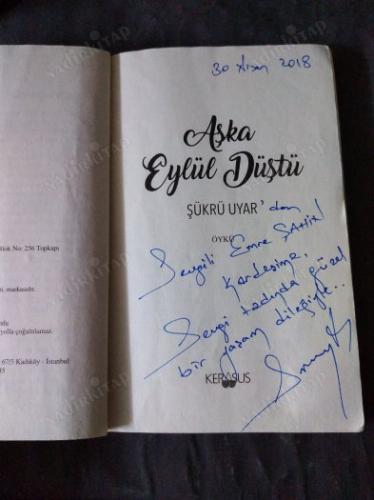 30 Nisan 2018
Aşka
Eylül Düştü
ŞÜKRÜ UYAR'dan
ÖYKÜ
Sevgili Emre ŞAHİN
Kardeşime,
Sevgi tadında güzel
bir yaşam dileğiyle..
KERASUS
No: 256 Topkapı
markasıdır.
yolla çoğaltılamaz.
67/5 Kadıköy - İstanbul
YADİKİTAP